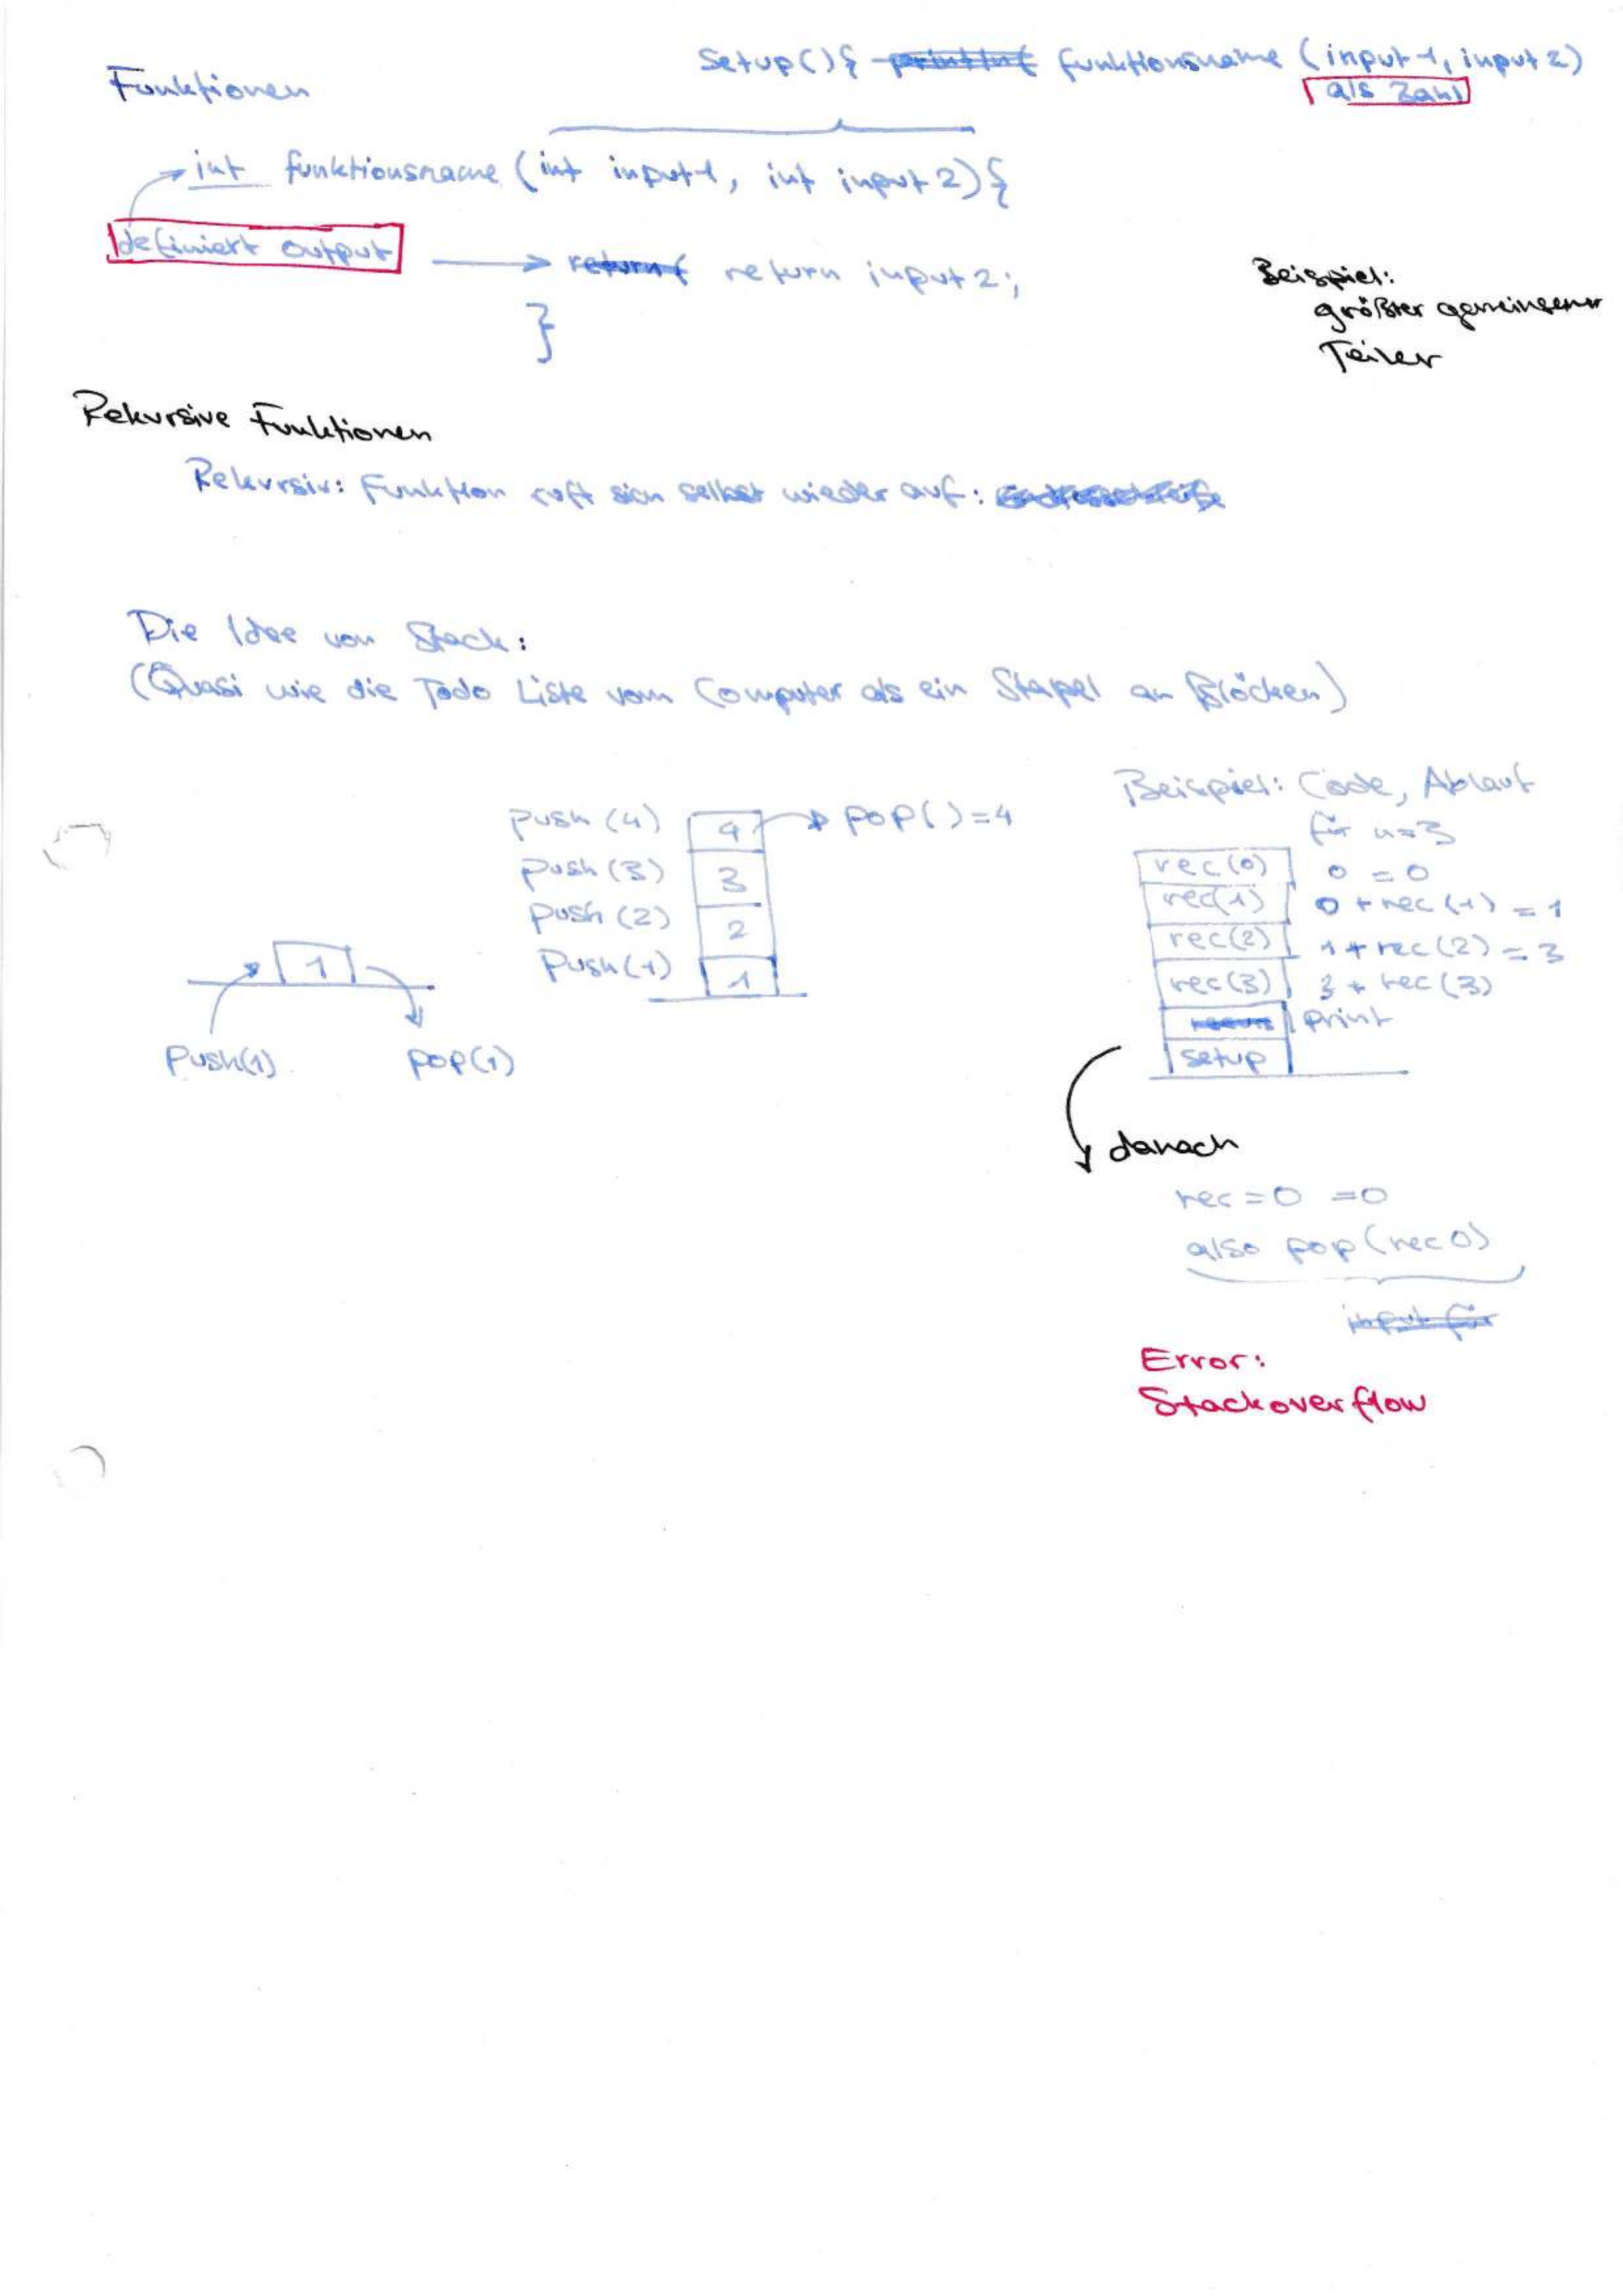 Setup(){ println( funktionsname (input 1, input 2)
als Zahl
Funktionen
int funktionsname (int input 1, int input 2){
definiert output
return( return input 2;
}
Beispiel:
größter gemeinsamer
Teiler
Rekursive Funktionen
Rekursiv: Funktion ruft sich selbst wieder auf:
Die Idee von Stack:
(Quasi wie die Todo Liste vom Computer als ein Stapel an Blöcken)
1
Push(1)
pop(1)
push (4) 4 pop()=4
push (3) 3
push (2) 2
Push(1) 1
Beispiel: Code, Ablauf
für n=3
rec(0) 0 = 0
rec(1) 0 + rec(1) = 1
rec(2) 1 + rec(2) = 3
rec(3) 3 + rec(3)
print
setup
danach
rec=0 =0
also pop(rec0)
input für
Error:
Stackoverflow